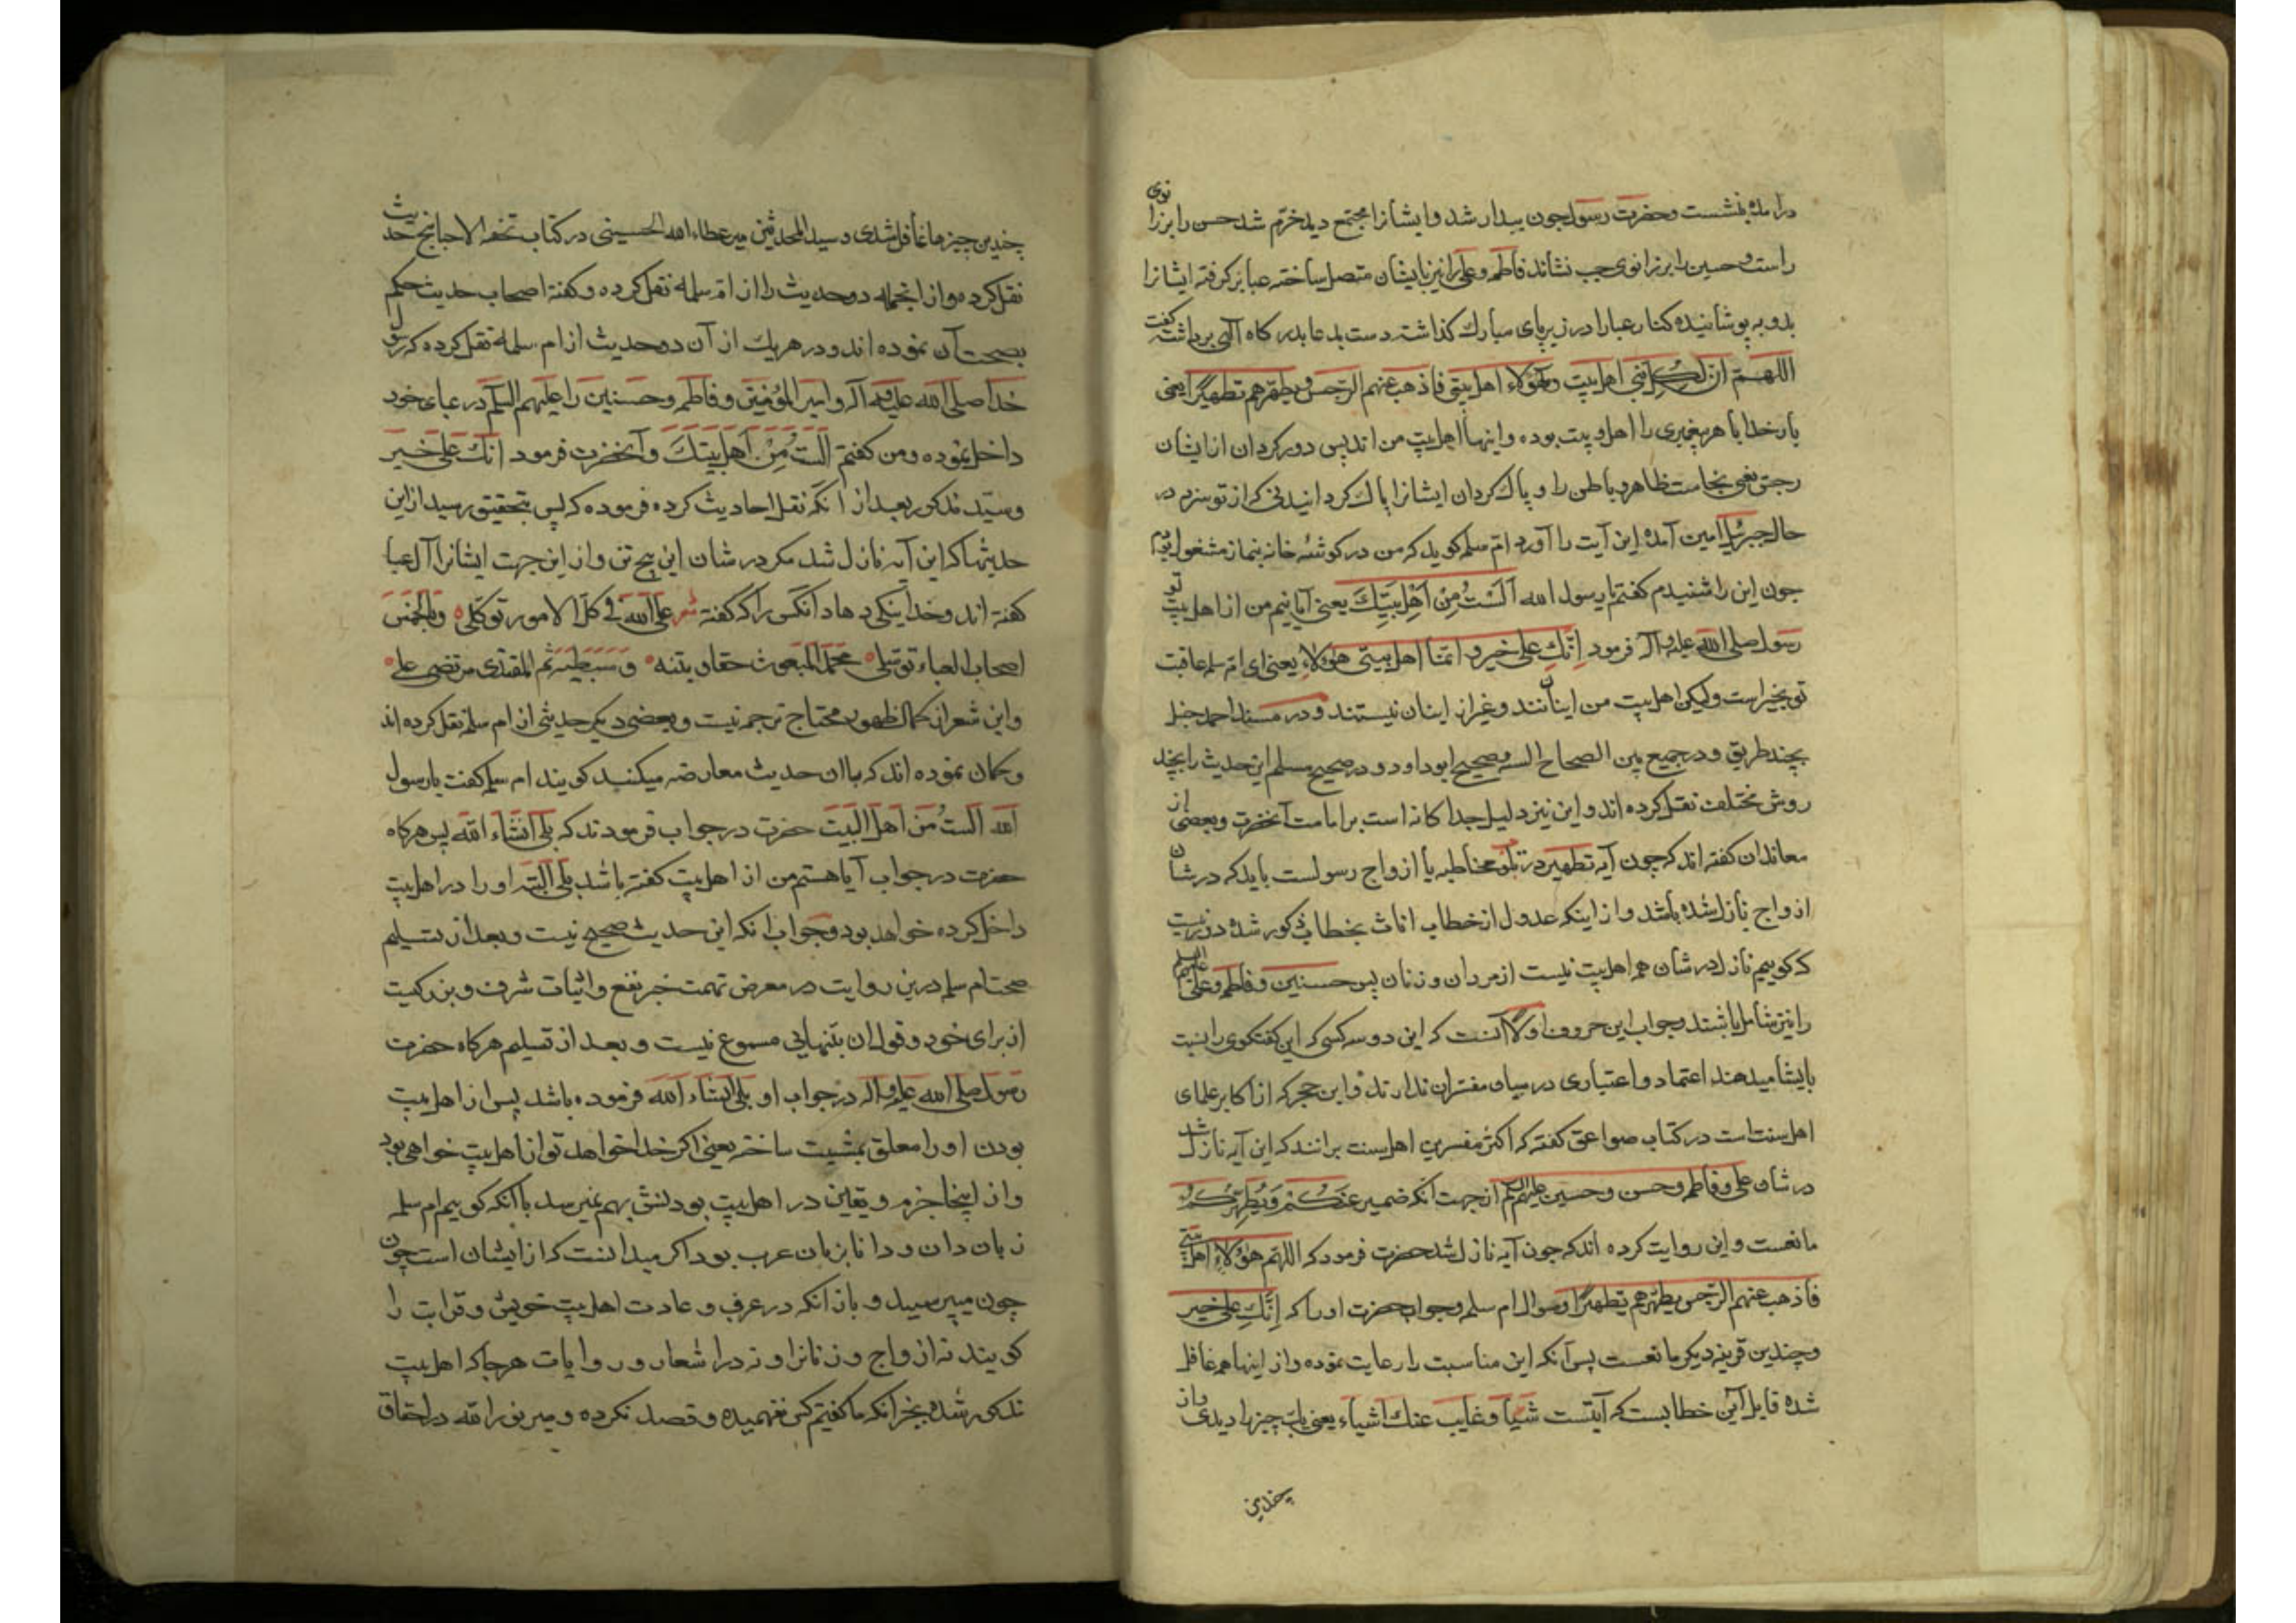 درآمده بنشست وحضرت رسول چون بیدار شد وایشانرا مجتمع دید خرّم شد حسن را بر زانوی
راست وحسین را بر زانوی چپ نشاند فاطمه وعلی را نیز بایشان متصل ساخته عبا برکرفته ایشانرا
بدو بپوشانیده کنار عبا را در زیر پای مبارك کذاشته دست بدعا بدرکاه آلهی برداشت کفت
اللهم ان لکل نبی اهل بیت وهؤلاء اهل بیتی فاذهب عنهم الرجس ویطهرهم تطهیرًا یعنی
بار خدایا هر پیغمبری را اهل وبیت بوده واینها اهل بیت من اند پس دور کردان از ایشان
رجس یعنی نجاست ظاهر وباطن را و پاك کردان ایشانرا پاك کردانیدنی که از تو سزد در
حال جبرئیل امین آمده این آیت را آورد ام سلمه کوید که من در کوشه خانه بنماز مشغول بودم
چون این را شنیدم کفتم یا رسول الله اَلَسْتُ مِنْ اَهْلِ بَیْتِكَ یعنی آیا نیم من از اهل بیت تو
رسول صلی الله علیه وآله فرمود اِنَّكِ علی خیر و انما اهل بیتی هؤلاءِ یعنی ای ام سلمه عاقبت
تو بخیر است ولیکن اهل بیت من اینانند وغیر از اینان نیستند ودر مسند احمد حنبل
بچند طریق ودر جمیع بین الصحاح السته وصحیح ابو داود و در صحیح مسلم این حدیث را بچند
روش مختلف نقل کرده اند و این نیز دلیل جدا کانه است بر امامت آنحضرت وبعضی از
معاندان کفته اند که چون آیه تطهیر در تلو مخاطبه با ازواج رسولست باید که در شان
ازواج نازل شده باشد و از اینکه عدول از خطاب اناث بخطاب ذکور شده دور نیست
که کوییم نازل در شان همه اهل بیت نیست از مردان و زنان پس حسنین وفاطمه وعلی علیهم السلم
را نیز شامل باشند وجواب این حروف اولًا آنست که این دو سه کسی که این کفتکوی را نسبت
بایشا میدهند اعتماد و اعتباری در میان مفسران ندارند و ابن حجر که از اکابر علمای
اهل سنت است در کتاب صواعق کفته که اکثر مفسرین اهل سنت برانند که این آیه نازل شد
در شان علی وفاطمه وحسن وحسین علیهم السلم از جهت آنکه ضمیر عَنکُمْ وَیُطَهِّرَکُمْ
مانعست و این روایت کرده اند که چون آیه نازل شد حضرت فرمود که اللهم هؤلاءِ اهل بیتی
فاذهب عنهم الرجس ویطهرهم تطهیرًا وسوال ام سلمه وجواب حضرت او را که اِنَّكِ علی خیر
وچندین قرینه دیکر مانعست پس آنکه این مناسبت را رعایت نموده واز اینها همه غافل
شده قابل این خطابست که آیتست شیأ وغایب عنك اشیاء یعنی یك چیز را دیدی واز
چندین
چندین چیزها غافل شدی و سید المحدثین میر عطاء الله الحسینی در کتاب تحفه الاحبا پنج حدیث
نقل کرده و از انجمله دو حدیث را از ام سلمه نقل کرده و کفته اصحاب حدیث حکم
بصحت آن نموده اند و در هریك از آن دو حدیث از ام سلمه نقل کرده که رسول
خدا صلی الله علیه وآله و امیر المؤمنین و فاطمه وحسنین را علیهم السلم در عباء خود
داخل نموده و من کفتم اَلَسْتُ مِنْ اَهلِ بَیتِكَ وآنحضرت فرمود انك علی خیر
وسید مذکور بعد از انکه نقل احادیث کرده فرموده که پس بتحقیق رسید از این
حدیثها که این آیه نازل نشد مکر در شان این پنج تن و از این جهت ایشانرا آل عبا
کفته اند وخدا نیکی دهاد آنکس را که کفته شعر علی الله فی کل الامور توکلی ٥ وبالخمس
اصحاب العباء توسلی ٥ محمد المبعوث حقا وبنته ٥ وسبطیه ثم المقتدی مرتضی علی ٥
واین شعر از کمال ظهور محتاج ترجمه نیست وبعضی دیکر حدیثی از ام سلمه نقل کرده اند
وکمان نموده اند که باان حدیث معارضه میکنند کویند ام سلمه کفت یا رسول
الله اَلَستُ مِن اَهل البیت حضرت در جواب فرمودند که بلی انشاء الله پس هرکاه
حضرت در جواب آیا هستم من از اهل بیت کفته باشد بلی البته او را در اهل بیت
داخل کرده خواهد بود وجواب انکه این حدیث صحیح نیست و بعد از تسلیم
صحت ام سلمه درین روایت در معرض تهمت خبر نفع واثبات شرف وبزرکیت
از برای خود و قول ان بتنهایی مسموع نیست و بعد از تسلیم هرکاه حضرت
رسول صلی الله علیه وآله در جواب او بلی انشاء الله فرموده باشد پس از اهل بیت
بودن او را معلق بمشیت ساخته یعنی اکر خدا خواهد تو از اهل بیت خواهی بود
واز اینجا جزم و یقین در اهل بیت بودنش بهم نمیرسد باآنکه کوییم ام سلمه
زبان دان و دانا بزبان عرب بود اکر میدانست که از ایشان است چون
چون میپرسید و باز انکه در عرف و عادت اهل بیت خویش وقرابت را
کویند نه ازواج وزنانرا و نه در اشعار و روایات هرجا که اهل بیت
مذکور شده بخیر آنکه ما کفتیم کس نفهمیده و قصد نکرده و میر نور الله در احقاق